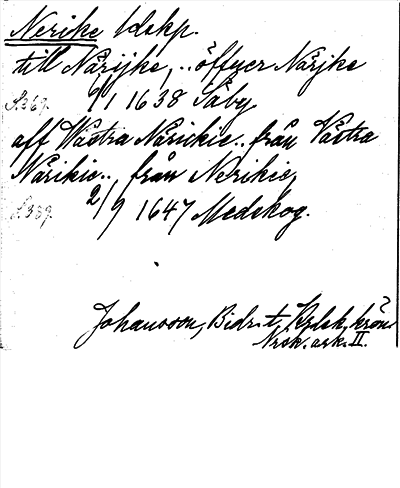 Nerike ldskp.
till Närijke, .. öffuer Närjke
S.269. 6/1 1638 Säby
aff Wästra Närickie.. från Västra
Närikie.., från Nerikie,
S.389. 2/9 1647 Medskog.
Johansson, Bidr. t. krön
Nrsk. ark. II.